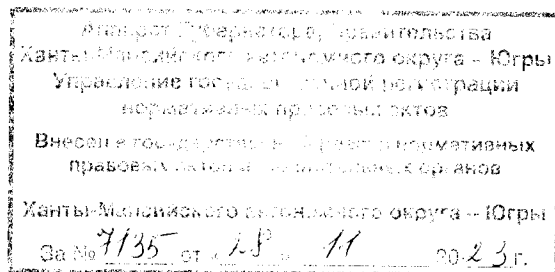 Аппарат Губернатора, Правительства
Ханты-Мансийского автономного округа – Югры
Управление государственной регистрации
нормативных правовых актов
Внесен в государственный нормативных
правовых актов органов
Ханты-Мансийского автономного округа – Югры
За № 7135 от « 28 » 11 2023 г.